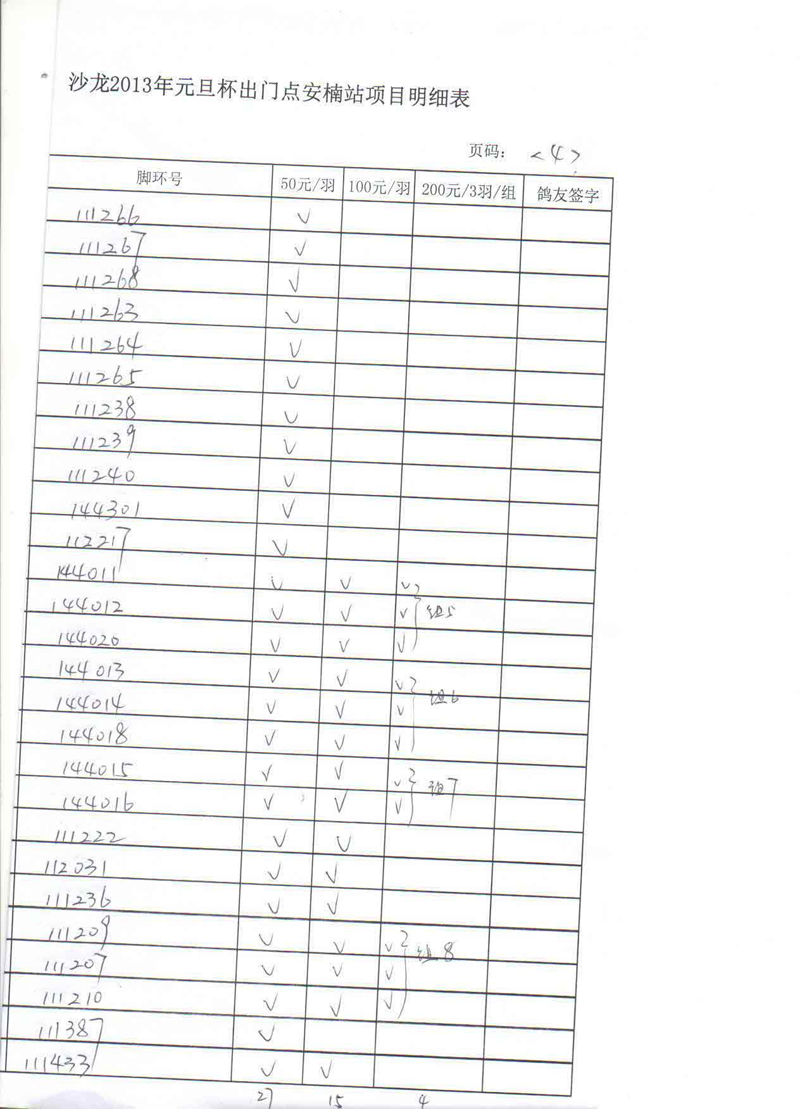 沙龙2013年元旦杯出门点安楠站项目明细表
页码： <4>
脚环号 50元/羽 100元/羽 200元/3羽/组 鸽友签字
111266 √
111267 √
111268 √
111263 √
111264 √
111265 √
111238 √
111239 √
111240 √
144301 √
112217 √
144011 √ √ √
144012 √ √ √ 组5
144020 √ √ √
144013 √ √ √
144014 √ √ √ 组6
144018 √ √ √
144015 √ √ √ 组7
144016 √ √ √
111222 √ √
112031 √ √
111236 √ √
111209 √ √ √ 组8
111207 √ √ √
111210 √ √ √
111387 √
111433 √ √
27 15 4